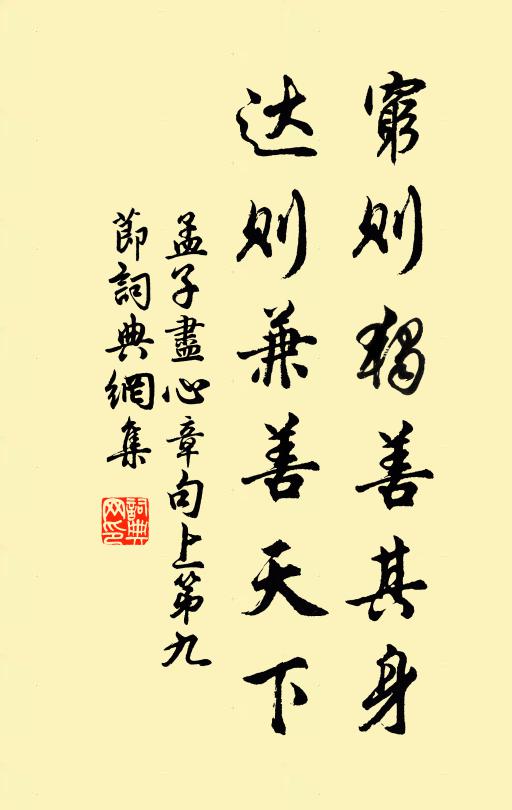 窮则獨善其身
达则兼善天下
孟子盡心章句上第九
節詞典網集
詞典
网印